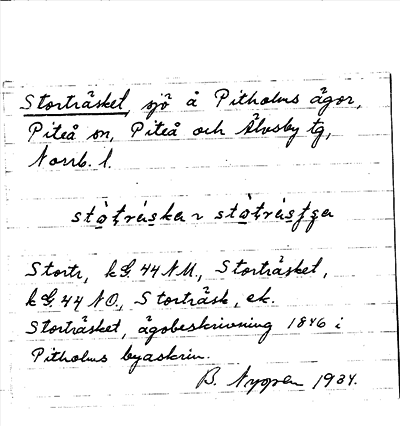 Storträsket, sjö å Pitholms ägor,
Piteå sn, Piteå och Älvsby tg,
Norrb. l.
Stortr, k G. 44 N.M., Storträsket,
k G. 44 N.O., Storträsk, ek.
Storträsket, ägobeskrivning 1846 i
Pitholms byaskrin.
B. Nygren 1934.